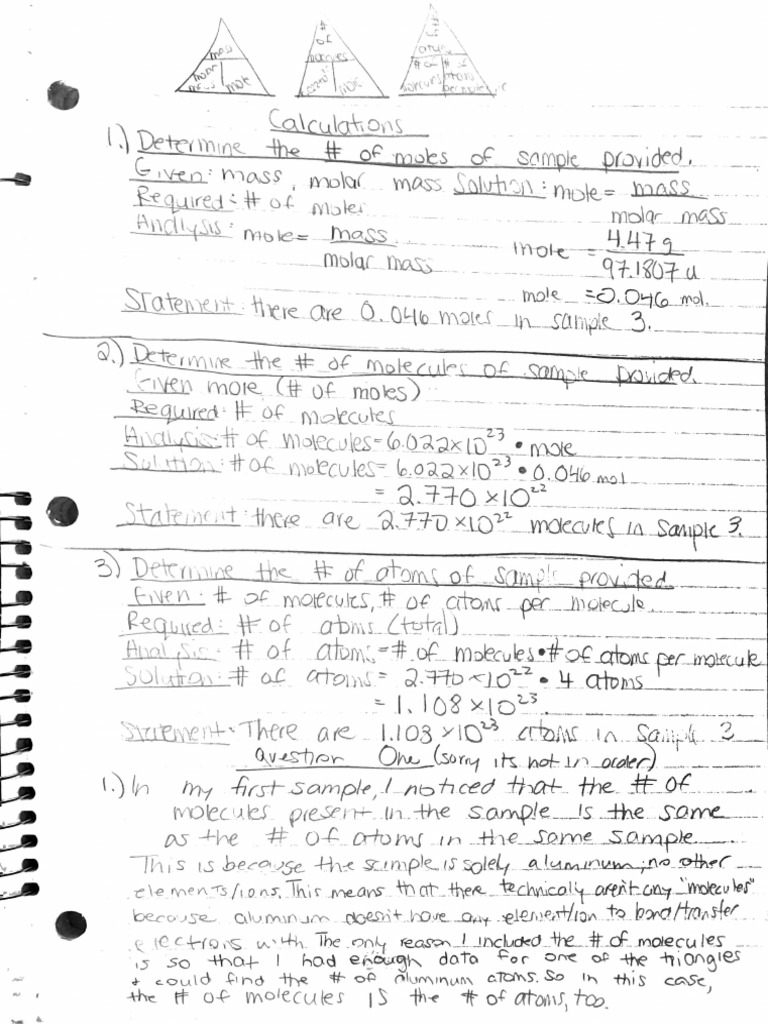 mass
molar mass
mole
# of
mole
# of
# of atoms per molecule
Calculations
1.) Determine the # of moles of sample provided.
Given: mass, molar mass Solution: mole = mass
Required: # of moles
molar mass
Analysis: mole = mass
molar mass
mole = 4.47g
97.1807 u
mole = 0.046 mol.
Statement: there are 0.046 moles in sample 3.
2.) Determine the # of molecules of sample provided.
Given mole (# of moles)
Required: # of molecules
Analysis: # of molecules = 6.022×10²³ • mole
Solution: # of molecules = 6.022×10²³ • 0.046 mol
= 2.770 ×10²²
Statement: there are 2.770 ×10²² molecules in sample 3.
3.) Determine the # of atoms of sample provided.
Given: # of molecules, # of atoms per molecule.
Required: # of atoms (total)
Analysis: # of atoms = # of molecules • # of atoms per molecule
Solution: # of atoms = 2.770 ×10²² • 4 atoms
= 1.108 ×10²³.
Statement: There are 1.103 ×10²³ atoms in sample 3
Question One (sorry its not in order)
1.) In my first sample, I noticed that the # of
molecules present in the sample is the same
as the # of atoms in the same sample.
This is because the sample is solely aluminum; no other
elements/ions. This means that there technicaly aren't any "molecules"
because aluminum doesn't have any element/ion to bond/transfer
electrons with. The only reason I included the # of molecules
is so that I had enough data for one of the triangles
+ could find the # of aluminum atoms. So in this case,
the # of molecules IS the # of atoms, too.